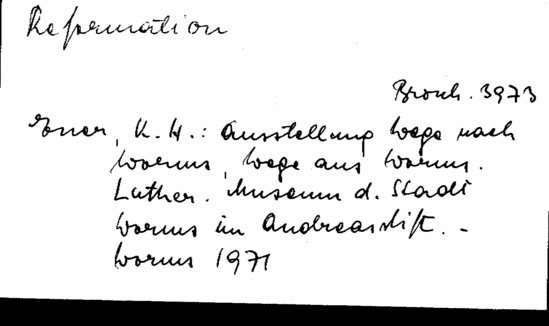 Reformation
Brosch. 3973
Esser, K. H.: Ausstellung Wege nach
Worms, Wege aus Worms.
Luther. Museum d. Stadt
Worms im Andreasstift. -
Worms 1971